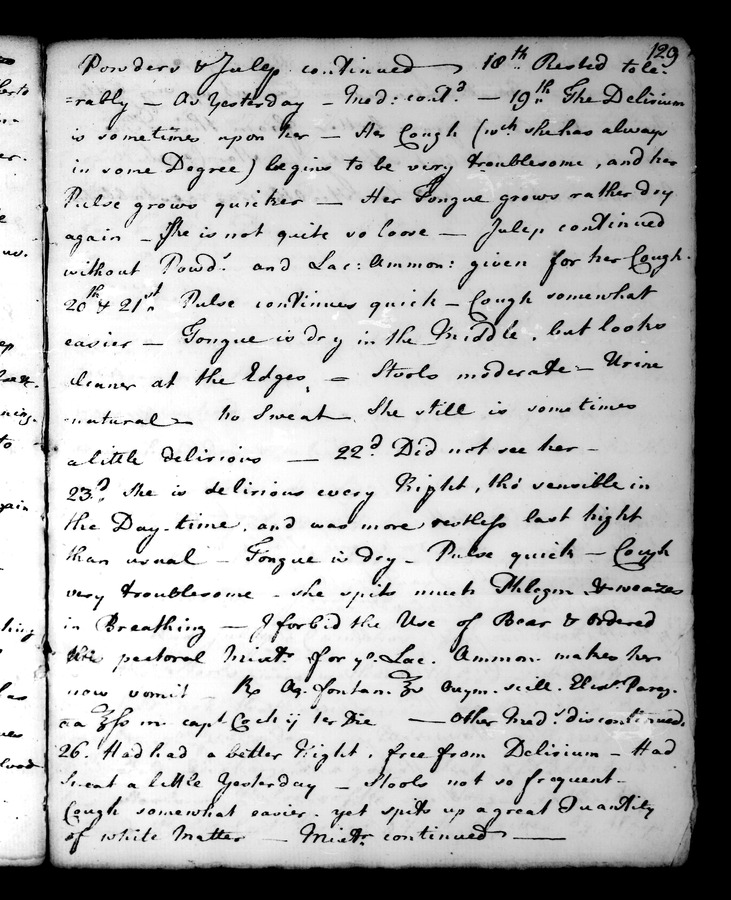 129
Powders & Julep continued — 18th Rested tole-
=rably — As Yesterday — Med: cont.d — 19th The Delirium
is sometimes upon her — Her Cough (wch she has always
in some Degree) begins to be very troublesome, and her
Pulse grows quicker — Her Tongue grows rather dry
again — She is not quite so loose — Julep continued
without Powd.s and Lac: Ammon: given for her Cough.
20th & 21st Pulse continues quick — Cough somewhat
easier — Tongue is dry in the Middle, but looks
cleaner at the Edges, — Stools moderate — Urine
natural — No Sweat. She still is sometimes
a little delirious — 22d Did not see her —
23.d She is delirious every Night, tho' sensible in
the Day-time, and was more restless last night
than usual — Tongue is dry — Pulse quick — Cough
very troublesome — she spits much Phlegm & weazes
in Breathing — I forbid the Use of Bear & ordered
pectoral Mixtr. for ye. Lac. Ammon. makes her
now vomit — Rx Aq. fontan. ℥v Oxym. scill. Elix. Pareg.
aa ℥ſs m. capt Coch ij ter Die — Other Med.s discontinued.
26. Had had a better Night, free from Delirium — Had
Sweat a little Yesterday — Stools not so frequent —
Cough somewhat easier, yet spits up a great Quantity
of white Matter — Mixtr. continued —